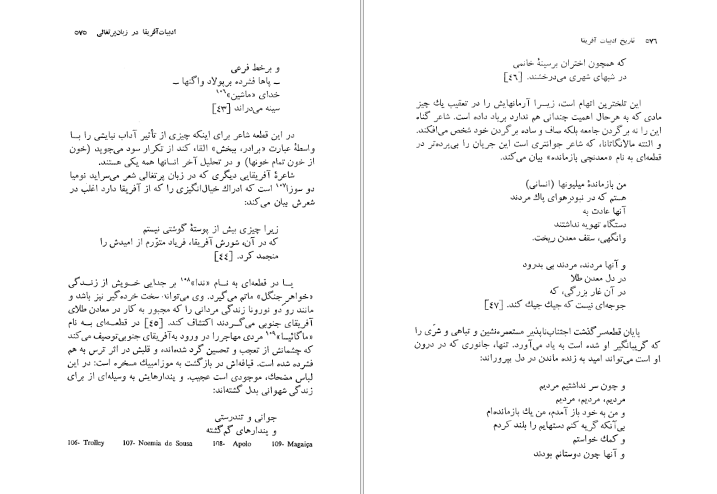 ادبیات آفریقا در زبان پرتغالی ۵۷۵
و برخط فرعی
ــ پاها فشرده برپولاد واگنها ــ
خدای «ماشین»۱۰۶
سینه می‌دراند [۴۳]
در این قطعه شاعر برای اینکه چیزی از تأثیر آداب نیایشی را بــا
واسطۀ عبارت «برادر، ببخش» القاء کند از تکرار سود می‌جوید (خون
از خون تمام خونها) و در تحلیل آخر انسانها همه یکی هستند.
شاعرۀ آفریقایی دیگری که در زبان پرتغالی شعر می‌سراید نومیا
دو سوزا۱۰۷ است که ادراك خیال‌انگیزی را که از آفریقا دارد اغلب در
شعرش بیان می‌کند:
زیرا چیزی بیش از پوستۀ گوشتی نیستم
که در آن، شورش آفریقا، فریاد متورّم از امیدش را
منجمد کرد. [۴۴]
یــا در قطعه‌ای به نــام «ندا»۱۰۸ بر جدایی خــویش از زنــدگی
«خواهر جنگل» ماتم می‌گیرد. وی می‌تواند سخت خرده‌گیر نیز باشد و
مانند رو دو نورونا زندگی مردانی را که مجبور به کار در معادن طلای
آفریقای جنوبی می‌گــردند آشکار کند. [۴۵] در قطعــه‌ای بــه نام
«ماگائیسا»۱۰۹ مردی مهاجر را در ورود به آفریقای جنوبی توصیف می‌کند
که چشمانش از تعجب و تحسین گرد شده‌اند، و قلبش در اثر ترس به هم
فشرده شده است. قیافه‌اش در بازگشت به موزامبیك مسخره است: در این
لباس مضحك، موجودی است عجیب. و پندارهایش به وسیله‌ای از برای
زندگی شهوانی بدل گشته‌اند:
جوانی و تندرستی
و پندارهای گم‌گشته
106- Trolley 107- Noemia de Sousa 108- Apolo 109- Magaiça
۵۷۶ تاریخ ادبیات آفریقا
که همچون اختران برسینۀ خانمی
در شبهای شهری می‌درخشند. [۴۶]
این تلخترین اتهام است، زیــرا آرمانهایش را در تعقیب یك چیز
مادی که به هرحال اهمیت چندانی هم ندارد برباد داده است. شاعر گناه
این را نه برگردن جامعه بلکه صاف و ساده برگردن خود شخص می‌افکند.
و البته مالانگاتانا، که شاعر جوانتری است این جریان را بی‌پرده‌تر در
قطعه‌ای به نام «معدنچی بازمانده» بیان می‌کند.
من بازماندۀ میلیونها (انسانی)
هستم که در نبود هوای پاك مردند
آنها عادت به
دستگاه تهویه نداشتند
وانگهی، سقف معدن ریخت.
و آنها مردند، مردند بی بدرود
در دل معدن طلا
در آن غار بزرگی، که
جوجه‌ای نیست که جیك جیك کند. [۴۷]
پایان قطعه سرگذشت اجتناب‌ناپذیر مستعمره‌نشین و تباهی و شرّی را
که گریبانگیر او شده است به یاد می‌آورد. تنها، جانوری که در درون
او است می‌تواند امید به زنده ماندن در دل بپروراند:
و چون سر نداشتیم مردیم
مردیم، مردیم، مردیم
و من به خود باز آمدم، من یك بازمانده‌ام
بی‌آنکه گریه کنم دستهایم را بلند کردم
و کمك خواستم
و آنها چون دوستانم بودند